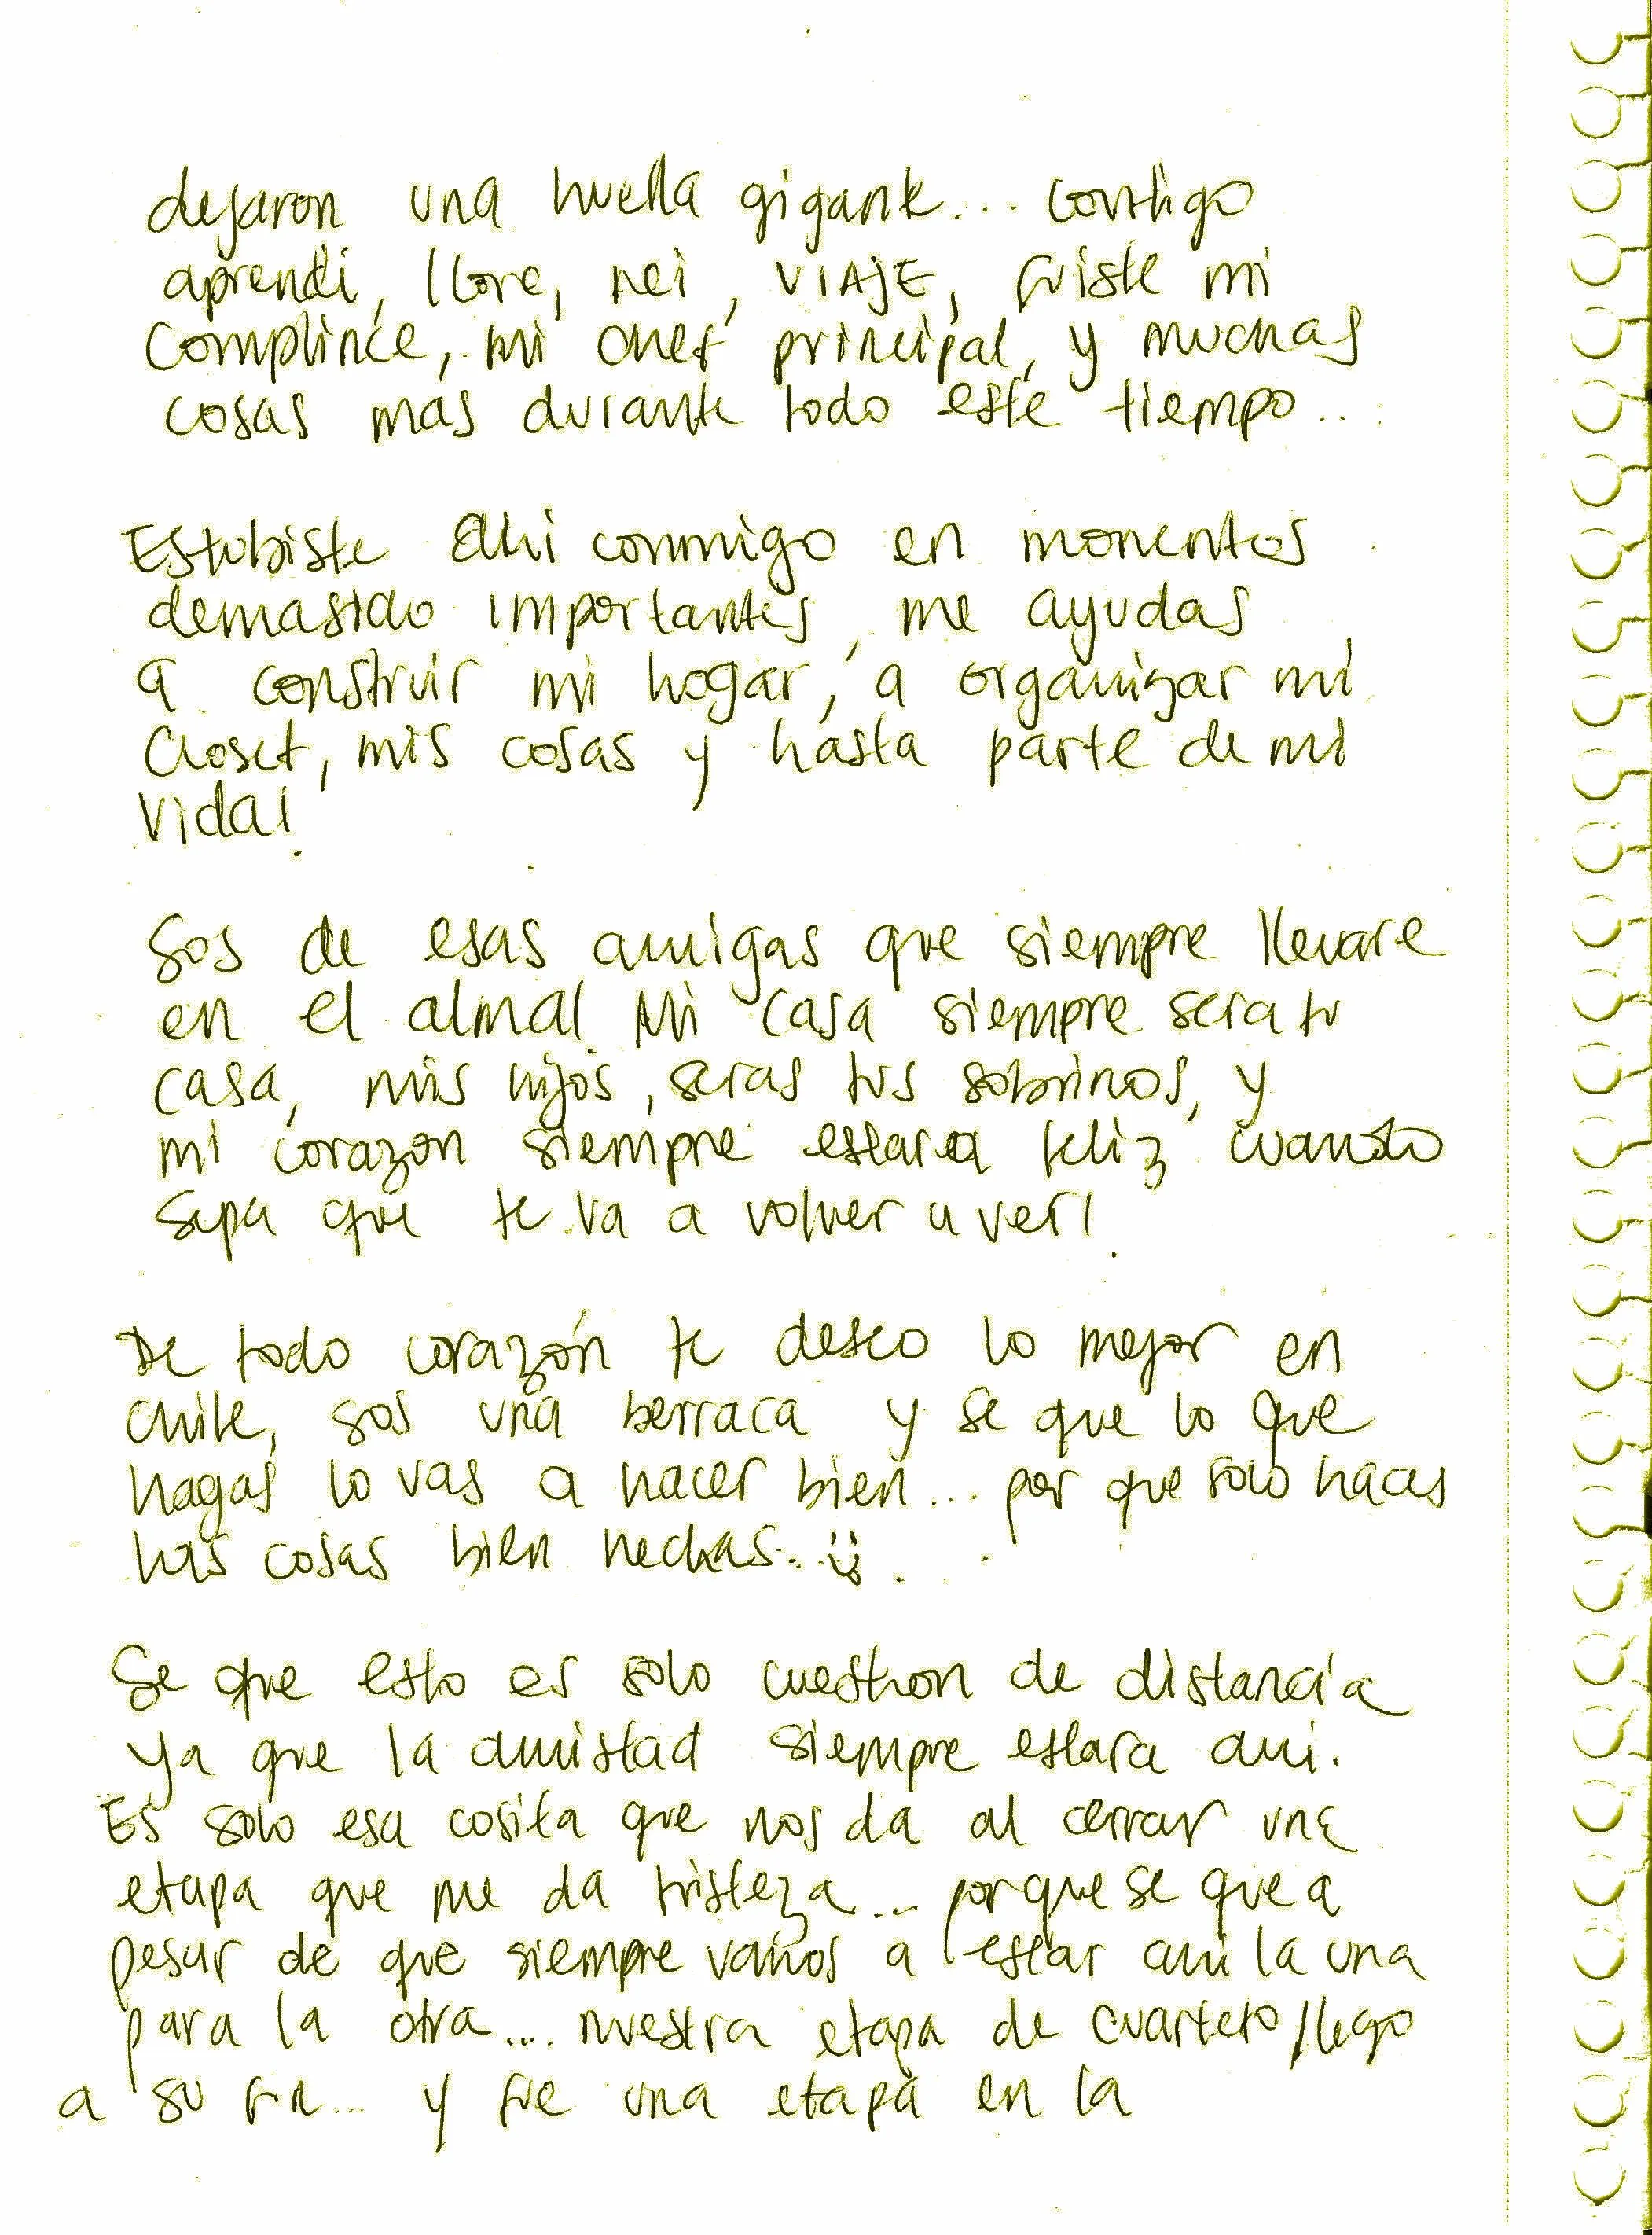 dejaron una huella gigante... contigo
aprendi, llore, rei, VIAJE, fuiste mi
complince, mi chef principal, y muchas
cosas mas durante todo este tiempo...
Estubiste ahi conmigo en momentos
demasido importantes, me ayudas
a construir mi hogar, a organizar mi
closet, mis cosas y hasta parte de mi
vida!
Sos de esas amigas que siempre llevare
en el alma! Mi casa siempre sera tu
casa, mis hijos, seras tus sobrinos, y
mi corazon siempre estara feliz cuando
sepa que te va a volver a ver!
De todo corazón te deseo lo mejor en
chile, sos una berraca y se que lo que
hagas lo vas a hacer bien... por que solo haces
las cosas bien hechas..
Se que esto es solo cuestion de distancia
ya que la amistad siempre estara ahi.
Es solo esa cosita que nos da al cerrar una
etapa que me da tristeza... porque se que a
pesar de que siempre vamos a estar ahi la una
para la otra.... nuestra etapa de cuarteto llego
a su fin... y fue una etapa en la